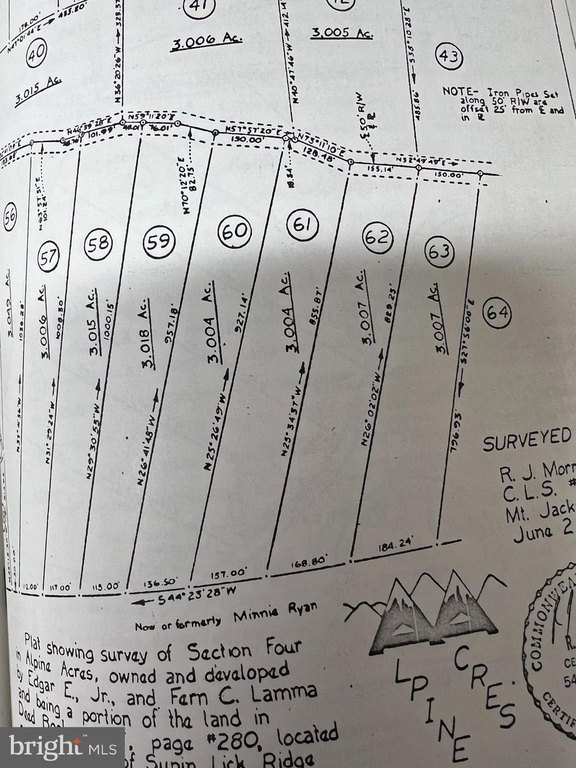 41
42
3.006 Ac.
3.005 Ac.
40
3.015 Ac.
43
N36°20'26"W
N40°47'46"W
S38°10'25"E
485.86'
NOTE- Iron Pipes Set
along 50' R/W are
offset 25' from £ and
in R
N59°11'20"E
76.01
101.99
N57°57'20"E
150.00'
N75°11'10"E
128.48'
£50'R/W
155.14'
N52°49'49"E
150.00'
N63°57'51"E
101.24'
N70°12'20"E
82.75'
18.54'
56
57
58
59
60
61
62
63
64
3.049 Ac.
3.006 Ac.
3.015 Ac.
3.018 Ac.
3.004 Ac.
3.004 Ac.
3.007 Ac.
3.007 Ac.
1008.50'
1000.15'
957.18'
927.14'
855.87'
829.23'
796.93'
S27°56'00"E
N31°29'24"W
N29°30'55"W
N26°41'48"W
N25°26'49"W
N25°34'37"W
N26°02'02"W
112.00'
117.00'
115.00'
136.50'
157.00'
168.80'
184.24'
S44°23'28"W
Now or formerly Minnie Ryan
SURVEYED
R. J. Morr
C.L.S. #
Mt. Jack
June 2
Plat showing survey of Section Four
in Alpine Acres, owned and developed
by Edgar E., Jr., and Fern C. Lamma
and being a portion of the land in
Deed Bo
, page #280, located
of Supin Lick Ridge
ALPINE
ACRES
COMMONWEA
R.
CE
54
CERTIFI
bright MLS